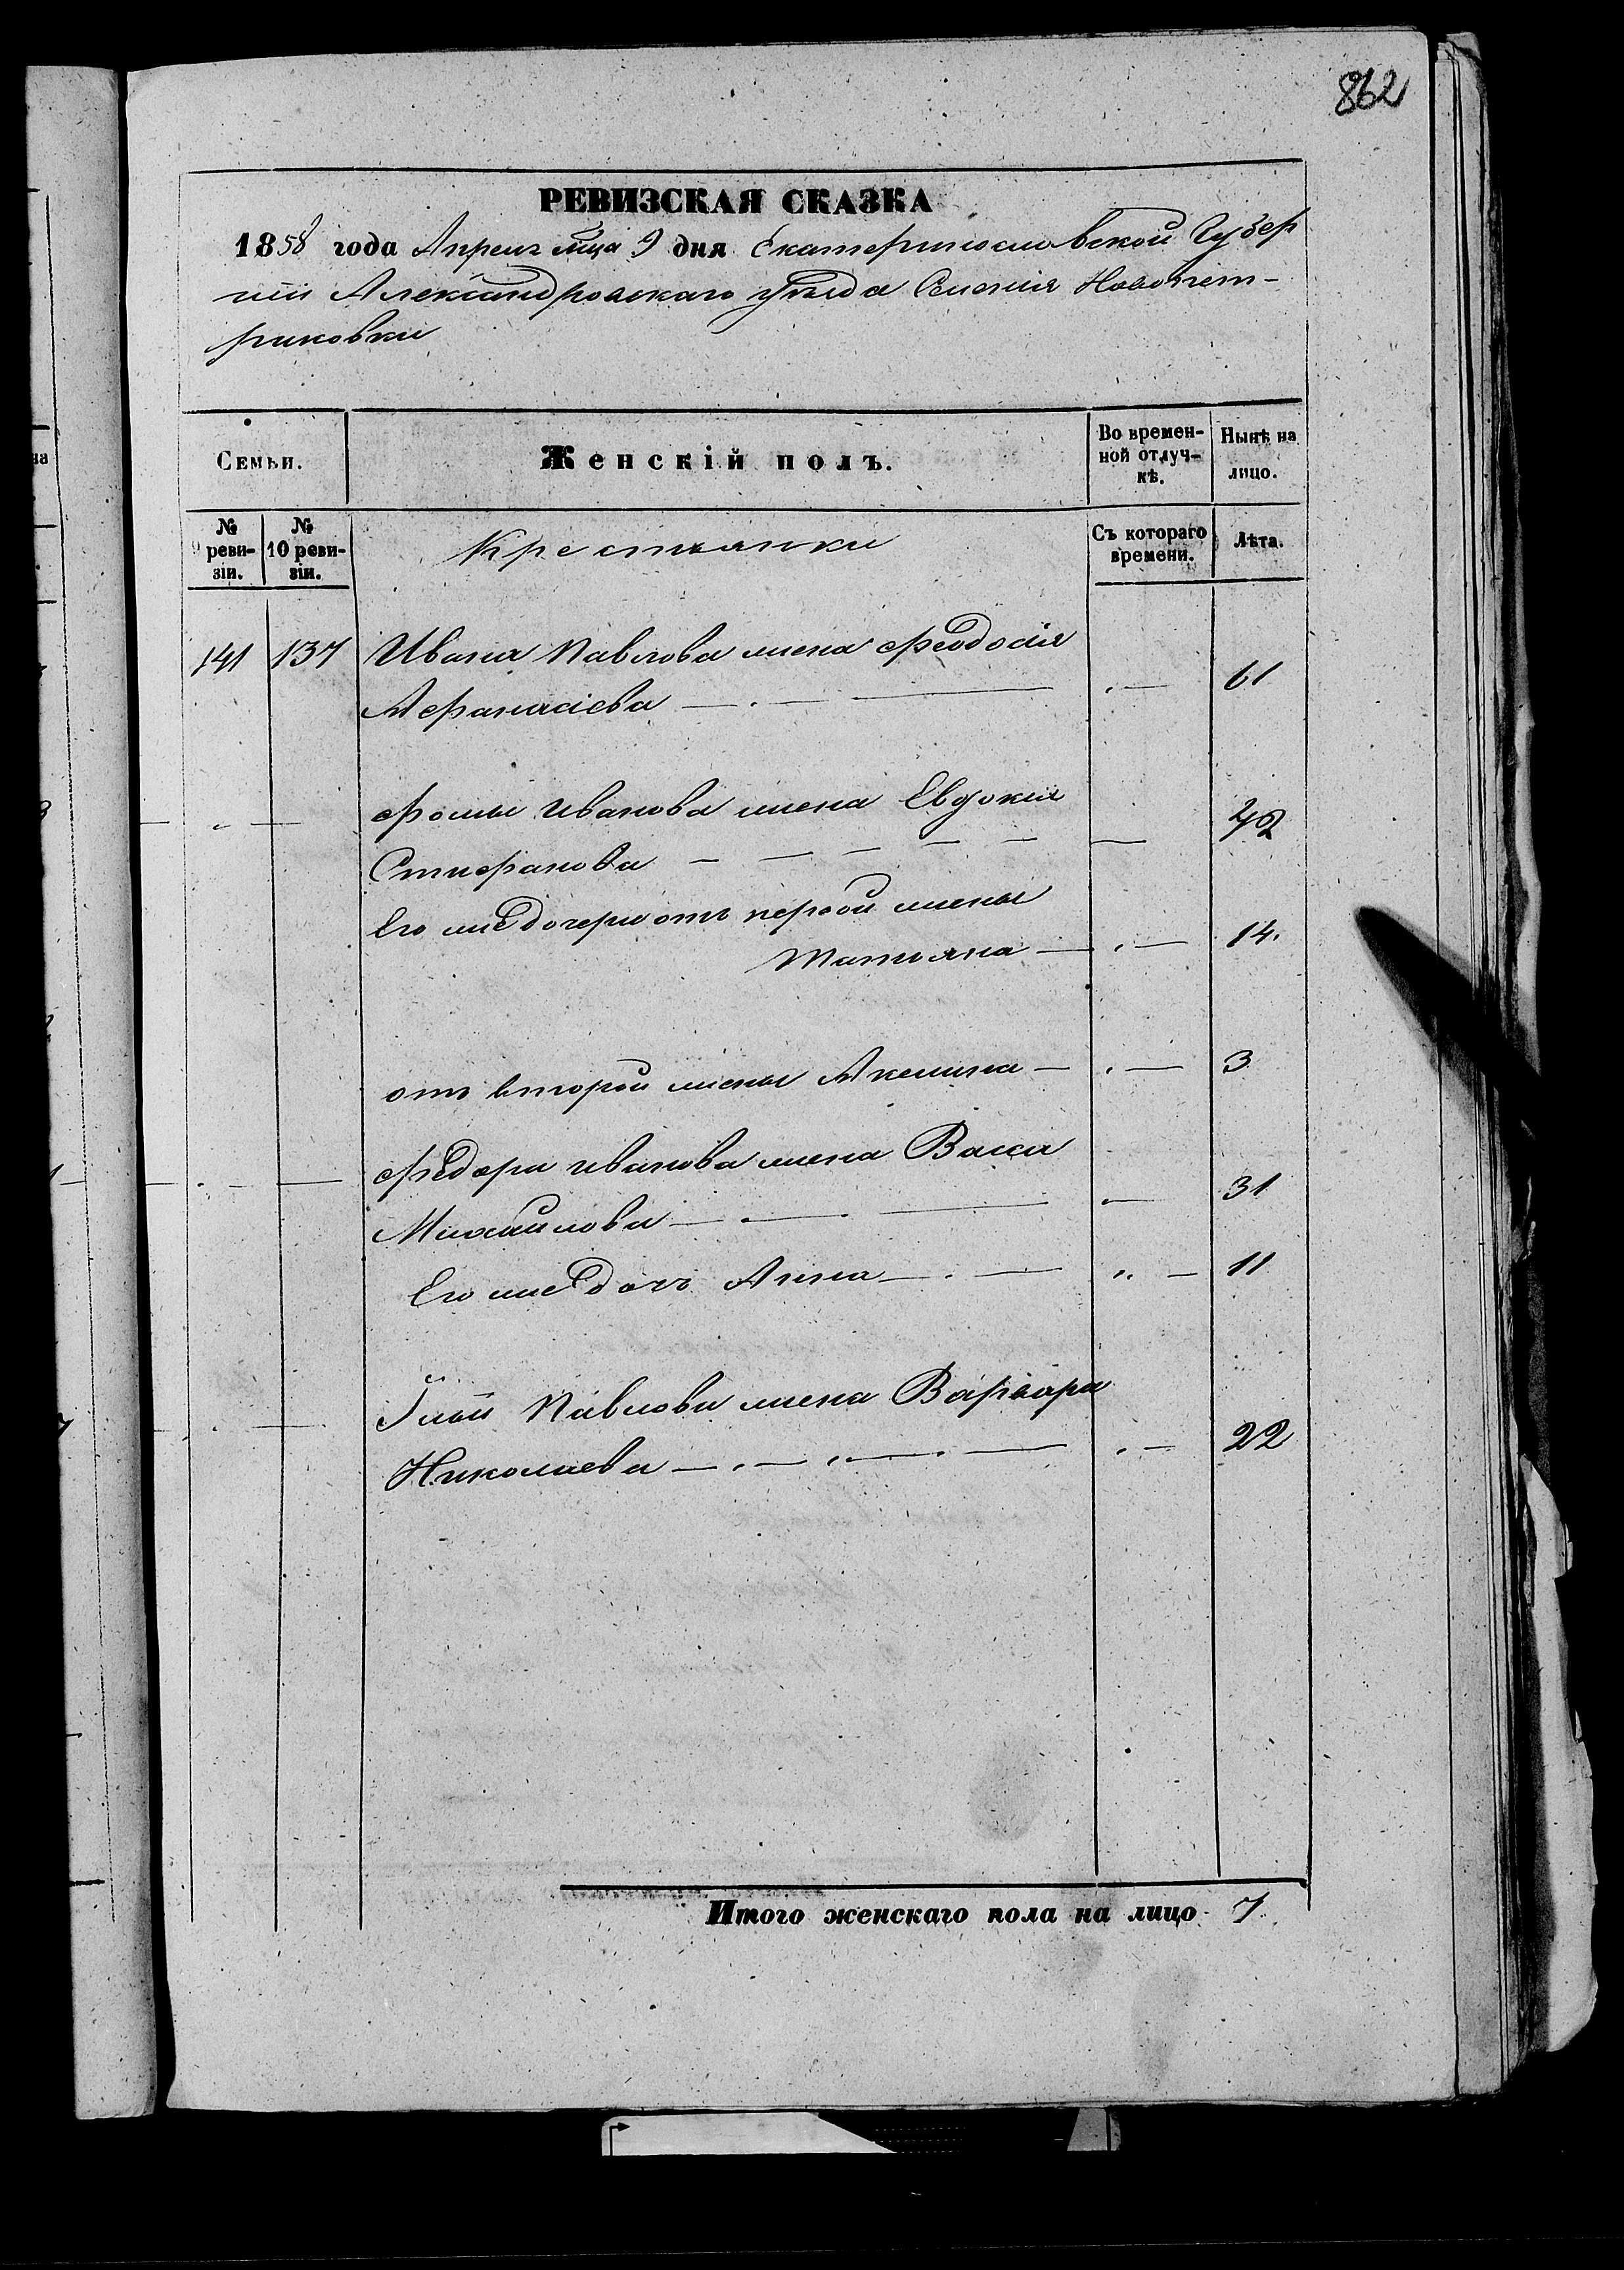 862
РЕВИЗСКАЯ СКАЗКА
1858 года Апреля мца 9 дня Екатеринославской Губер
ніи Александровскаго уѣзда Селенія Новопет-
риковки
Семьи.
Женскій полъ.
Во времен-
ной отлуч-
кѣ.
Нынѣ на
лицо.
№
9 реви-
зіи.
№
10 реви-
зіи.
Крестьянки
Съ котораго
времени.
Лѣта.
141 137 Ивана Павлова жена Феодосія
Афанасіева — . — — . — 61
Фомы Иванова жена Евдокія
Стефанова — — — — — — 42
Его же дочери отъ первой жены
Татьяна — . — 14.
отъ второй жены Акелина — . — 3
Федора Иванова жена Васса
Михайлова — . — — — 31
Его же дочь Анна — . — „ — 11
Ильи Павлова жена Варвара
Николаева — . — . — . — . — 22
Итого женскаго пола на лицо 7.